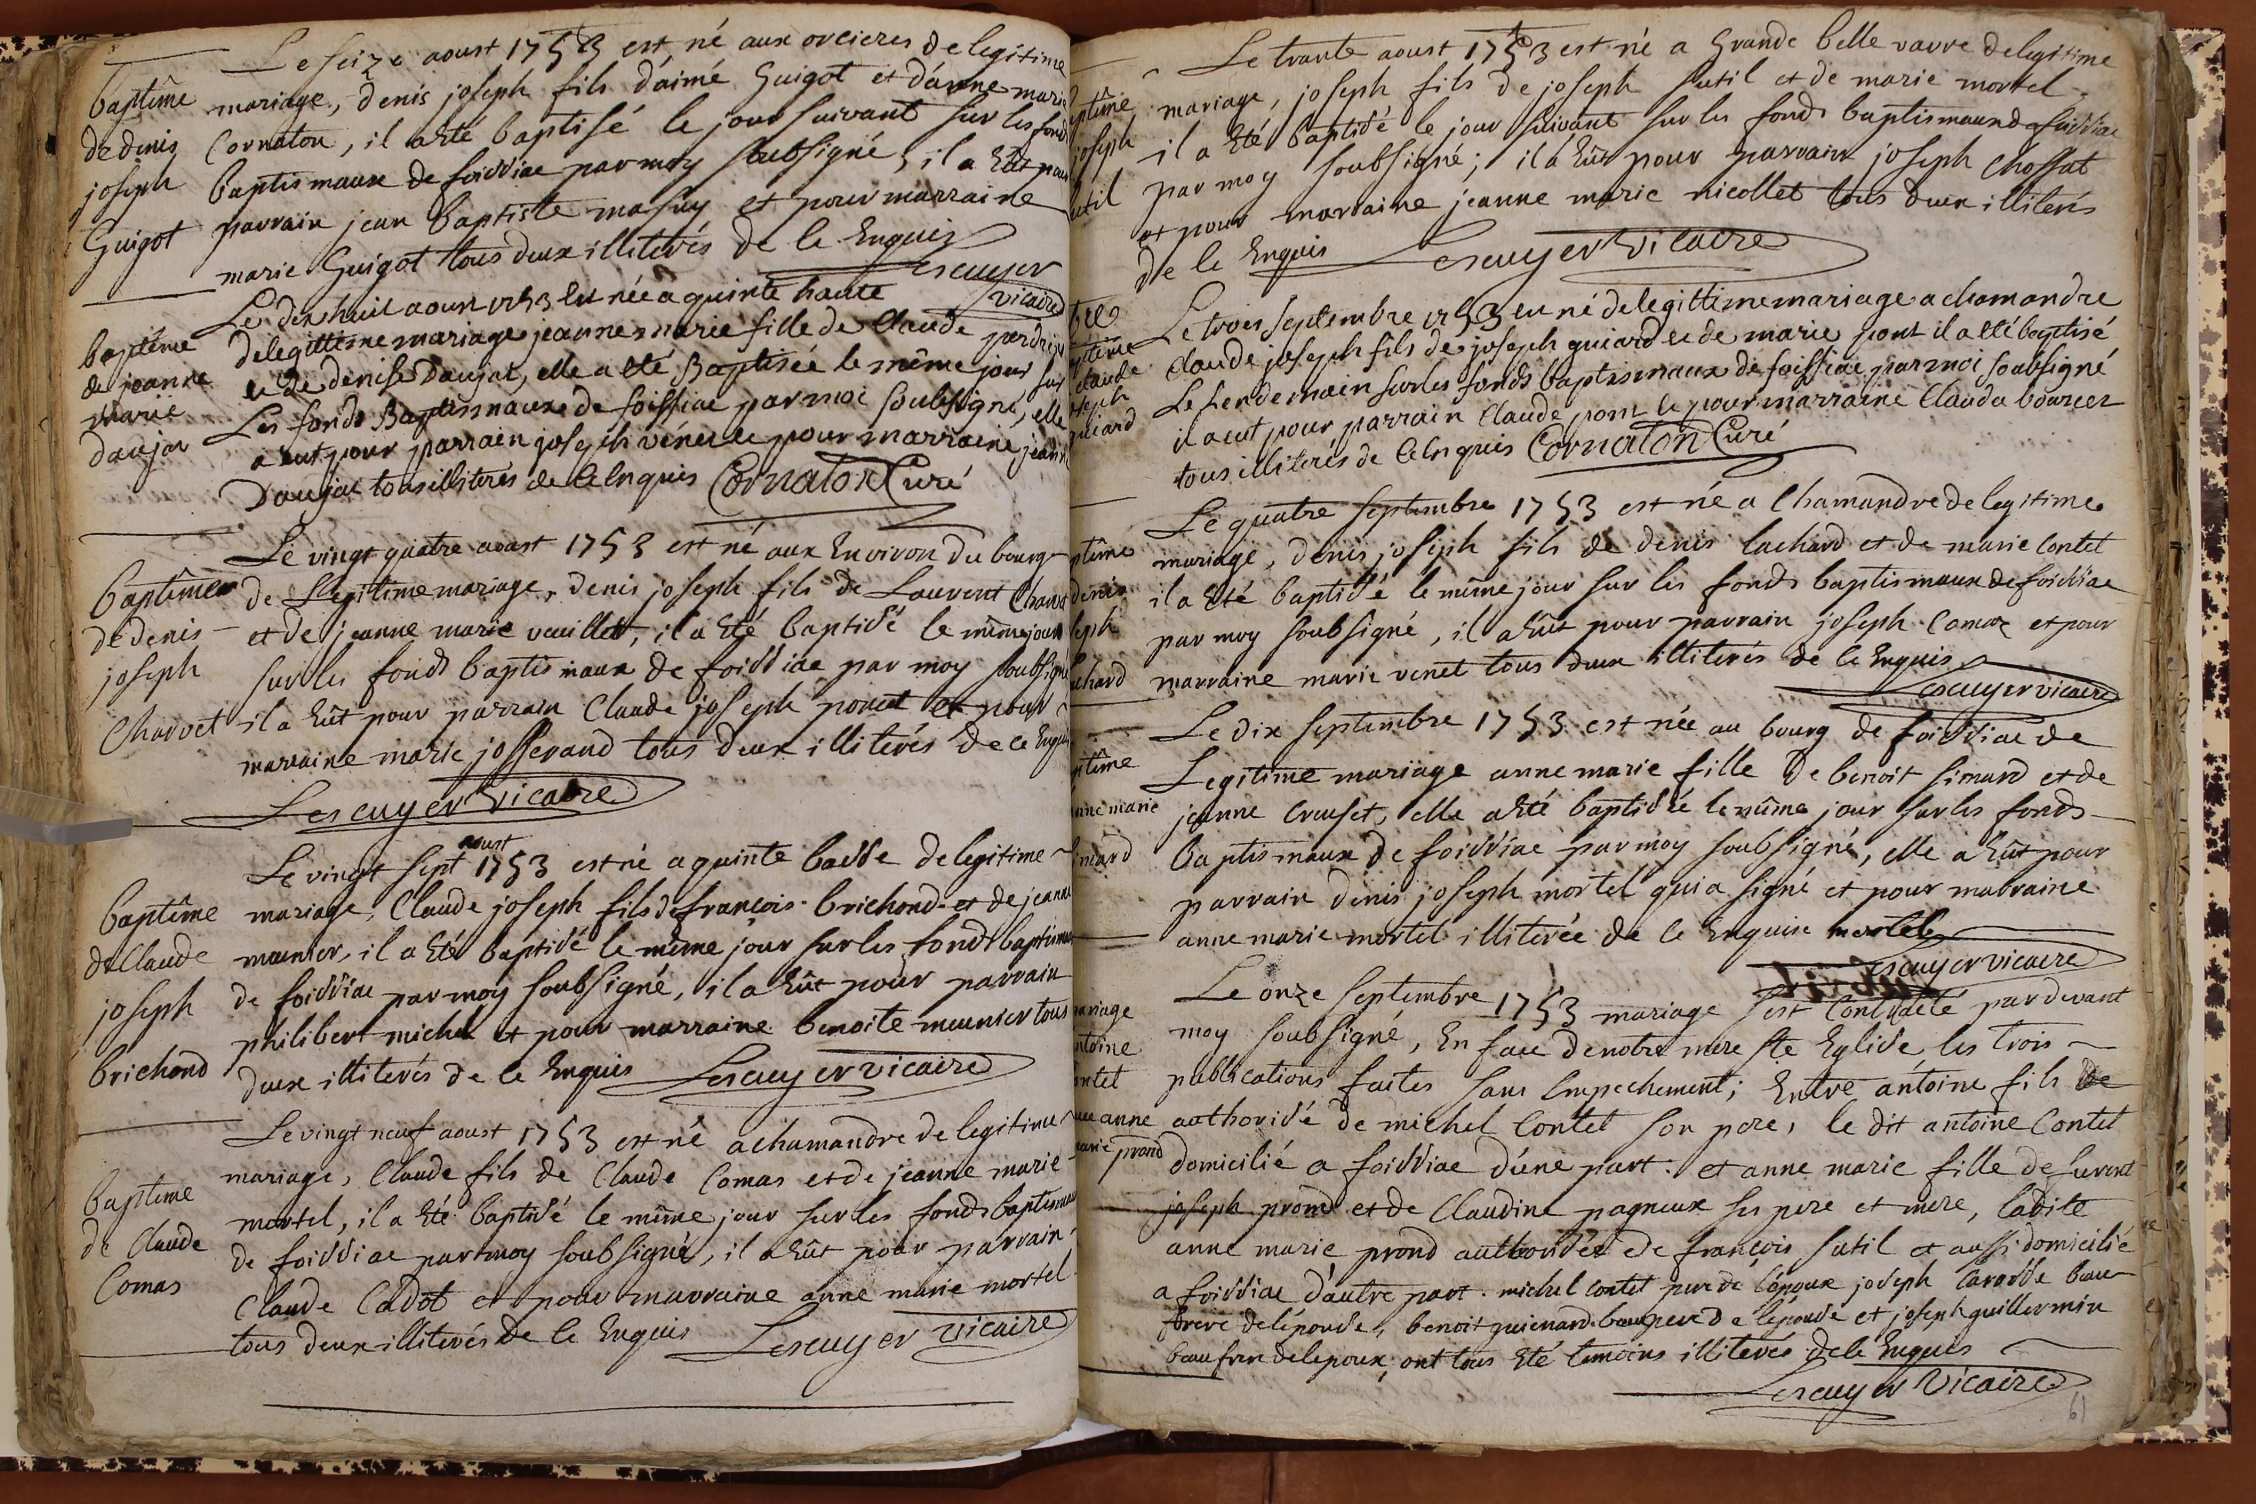 Le seize aoust 1753 est né aux orcieres de legitime
baptême
de denis
joseph
Guigot
mariage, denis joseph fils d'aimé Guigot et d'anne marie
Cornaton, il a Eté baptisé le jour suivant sur les fonds
baptismaux de foissiac par moy soubsigné, il a Eût pour
parrain jean baptiste masuy et pour marraine
marie Guigot tous deux illiterés de ce Enquis
Lescuyer
vicaire
Le dix huit aoust 1753 est née a quinte haute
baptême
de jeanne
marie
Daujat
de legittime mariage jeanne marie fille de Claude perdrix
et de denise Daujat, elle a eté Baptisée le même jour sur
Les fonds Baptismaux de foissiac par moi soubsigné, elle
a eut pour parrain joseph venet et pour marraine jeanne
Daujat tous illiterés de ce Enquis Cornaton Curé
Le vingt quatre aoust 1753 est né aux Environ du bourg
Baptême
de denis
joseph
Charvet
de Legitime mariage, denis joseph fils de Laurent Charvet
et de jeanne marie veuillet, il a Eté baptisé le même jour
sur les fonds baptismaux de foissiac par moy soubsigné
il a Eût pour parrain Claude joseph poncet et pour
marraine marie josserand tous deux illiterés de ce Enquis
Lescuyer Vicaire
aoust
Le vingt sept 1753 est né a quinte basse de legitime
baptême
de Claude
joseph
brichond
mariage, Claude joseph fils de françois brichond et de jeanne
meunier, il a Eté baptisé le même jour sur les fonds baptismaux
de foissiac par moy soubsigné, il a Eût pour parrain
philibert michel et pour marraine benoite meunier tous
deux illiterés de ce Enquis Lescuyer vicaire
Le vingt neuf aoust 1753 est né a chamandre de legitime
baptême
de Claude
Comas
mariage, Claude fils de Claude Comas et de jeanne marie
mortel, il a Eté baptisé le même jour sur les fonds baptismaux
de foissiac par moy soubsigné, il a Eût pour parrain
Claude Cadot et pour marraine anne marie mortel
tous deux illiterés de ce Enquis Lescuyer vicaire
Le trante aoust 1753 est né a Grande belle vavre de legitime
ptême
joseph
util
mariage, joseph fils de joseph sutil et de marie mortel
il a Eté baptisé le jour suivant sur les fonds baptismaux de foissiac
par moy soubsigné; il a Eût pour parrain joseph Chossat
et pour marraine jeanne marie nicollet tous deux illiterés
de ce Enquis Lescuyer Vicaire
Le trois septembre 1753 est né de legittime mariage a chamandre
ptême
claude
oseph
guiard
Claude joseph fils de joseph guiard et de marie pont il a eté baptisé
Le lendemain sur les fonds baptismaux de foissiac par moi soubsigné
il a eut pour parrain Claude pont et pour marraine Clauda bourcet
tous illiterés de ce Enquis Cornaton Curé
Le quatre septembre 1753 est né a Chamandre de legitime
ptême
denis
seph
achard
mariage, denis joseph fils de denis lachard et de marie Contet
il a Eté baptisé le même jour sur les fonds baptismaux de foissiac
par moy soubsigné, il a Eût pour parrain joseph Comas et pour
marraine marie venet tous deux illiterés de ce Enquis
Lescuyer vicaire
Le dix septembre 1753 est née au bourg de foissiac de
ptême
anne marie
imard
Legitime mariage anne marie fille de benoit simard et de
jeanne Creuset, elle a Eté baptisée le même jour sur les fonds
baptismaux de foissiac par moy soubsigné, elle a Eût pour
parrain denis joseph mortel qui a signé et pour marraine
anne marie mortel illiterée de ce Enquise mortel
Lescuyer vicaire
Le onze septembre 1753 mariage s'est Contracté par devant
mariage
antoine
ontet
anne
marie prond
moy soubsigné, En face de notre mere ste Eglise les trois
publications faites sans Empechement; Entre antoine fils de
authorisé de michel Contet son pere, le dit antoine Contet
domicilié a foissiac d'une part. et anne marie fille de furent
joseph prond et de Claudine pagneux ses pere et mere, ladite
anne marie prond authorisée de françois sutil et aussi domicilié
a foissiac d'autre part. michel contet pere de l'époux joseph Carosse beau
frere de l'épouse, benoit guienard beau pere de l'épouse et joseph guillermin
beau frere de l'époux, ont tous Eté temoins illiterés de ce Enquis
Lescuyer Vicaire
61